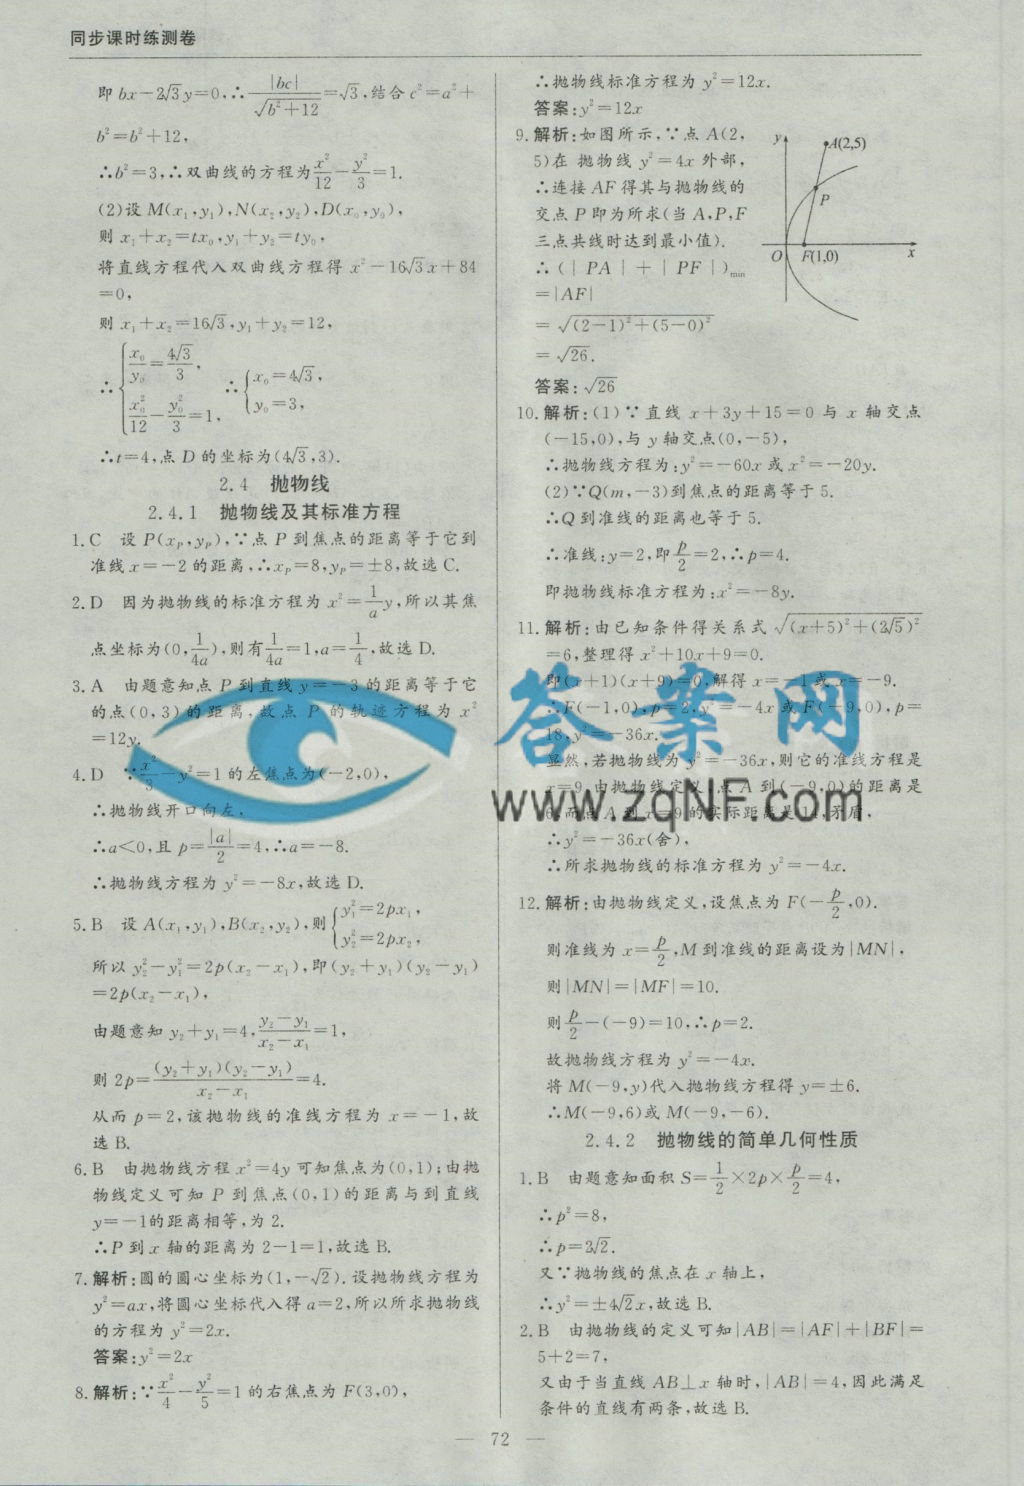 同步课时练测卷
即 bx－2√3y＝0,∴|bc|/√(b²＋12)＝√3,结合 c²＝a²＋
b²＝b²＋12,
∴b²＝3,∴双曲线的方程为x²/12－y²/3＝1.
(2)设 M(x₁,y₁),N(x₂,y₂),D(x₀,y₀),
则 x₁＋x₂＝tx₀,y₁＋y₂＝ty₀,
将直线方程代入双曲线方程得 x²－16√3x＋84
＝0,
则 x₁＋x₂＝16√3,y₁＋y₂＝12,
∴{x₀/y₀＝4√3/3, x₀²/12－y₀²/3＝1, ∴{x₀＝4√3, y₀＝3,
∴t＝4,点 D 的坐标为(4√3,3).
2.4 抛物线
2.4.1 抛物线及其标准方程
1.C 设 P(x_P,y_P),∵点 P 到焦点的距离等于它到
准线 x＝－2 的距离,∴x_P＝8,y_P＝±8,故选 C.
2.D 因为抛物线的标准方程为 x²＝1/a y,所以其焦
点坐标为(0,1/4a),则有1/4a＝1,a＝1/4,故选 D.
3.A 由题意知点 P 到直线 y＝－3 的距离等于它
的点(0,3)的距离,故点 P 的轨迹方程为 x²
＝12y.
4.D ∵x²/3－y²＝1 的左焦点为(－2,0),
∴抛物线开口向左,
∴a＜0,且 p＝|a|/2＝4,∴a＝－8.
∴抛物线方程为 y²＝－8x,故选 D.
5.B 设 A(x₁,y₁),B(x₂,y₂),则{y₁²＝2px₁, y₂²＝2px₂,
所以 y₂²－y₁²＝2p(x₂－x₁),即(y₂＋y₁)(y₂－y₁)
＝2p(x₂－x₁),
由题意知 y₂＋y₁＝4,(y₂－y₁)/(x₂－x₁)＝1,
则 2p＝(y₂＋y₁)(y₂－y₁)/(x₂－x₁)＝4.
从而 p＝2,该抛物线的准线方程为 x＝－1,故
选 B.
6.B 由抛物线方程 x²＝4y 可知焦点为(0,1);由抛
物线定义可知 P 到焦点(0,1)的距离与到直线
y＝－1的距离相等,为 2.
∴P 到 x 轴的距离为 2－1＝1,故选 B.
7.解析:圆的圆心坐标为(1,－√2).设抛物线方程为
y²＝ax,将圆心坐标代入得 a＝2,所以所求抛物线
的方程为 y²＝2x.
答案:y²＝2x
8.解析:∵x²/4－y²/5＝1 的右焦点为 F(3,0),
∴抛物线标准方程为 y²＝12x.
答案:y²＝12x
9.解析:如图所示,∵点 A(2,
5)在 抛物线 y²＝4x 外部,
∴连接 AF 得其与抛物线的
交点 P 即为所求(当 A,P,F
三点共线时达到最小值).
∴(|PA|＋|PF|)min
＝|AF|
＝√((2－1)²＋(5－0)²)
＝√26.
答案:√26
y
A(2,5)
P
O
F(1,0)
x
10.解析:(1)∵直线 x＋3y＋15＝0 与 x 轴交点
(－15,0),与 y 轴交点(0,－5),
∴抛物线方程为:y²＝－60x 或 x²＝－20y.
(2)∵Q(m,－3)到焦点的距离等于 5.
∴Q 到准线的距离也等于 5.
∴准线:y＝2,即p/2＝2,∴p＝4.
即抛物线标准方程为:x²＝－8y.
11.解析:由已知条件得关系式 √((x＋5)²＋(2√5)²)
＝6,整理得 x²＋10x＋9＝0.
即(x＋1)(x＋9)＝0,解得 x＝－1或 x＝－9.
∴F(－1,0),p＝2,y²＝－4x 或 F(－9,0),p＝
18,y²＝－36x.
显然,若抛物线为 y²＝－36x,则它的准线方程是
x＝9,由抛物线定义,点 A 到(－9,0)的距离是
6,而点 A 到 x＝9 的实际距离是 14,矛盾,
∴y²＝－36x(舍),
∴所求抛物线的标准方程为 y²＝－4x.
12.解析:由抛物线定义,设焦点为 F(－p/2,0).
则准线为 x＝p/2,M 到准线的距离设为|MN|,
则|MN|＝|MF|＝10.
则p/2－(－9)＝10,∴p＝2.
故抛物线方程为 y²＝－4x.
将 M(－9,y)代入抛物线方程得 y＝±6.
∴M(－9,6)或 M(－9,－6).
2.4.2 抛物线的简单几何性质
1.B 由题意知面积 S＝1/2×2p×p/2＝4,
∴p²＝8,
∴p＝2√2.
又∵抛物线的焦点在 x 轴上,
∴y²＝±4√2x,故选 B.
2.B 由抛物线的定义可知|AB|＝|AF|＋|BF|＝
5＋2＝7,
又由于当直线 AB⊥x 轴时,|AB|＝4,因此满足
条件的直线有两条,故选 B.
答案网
www.zqNF.com
— 72 —